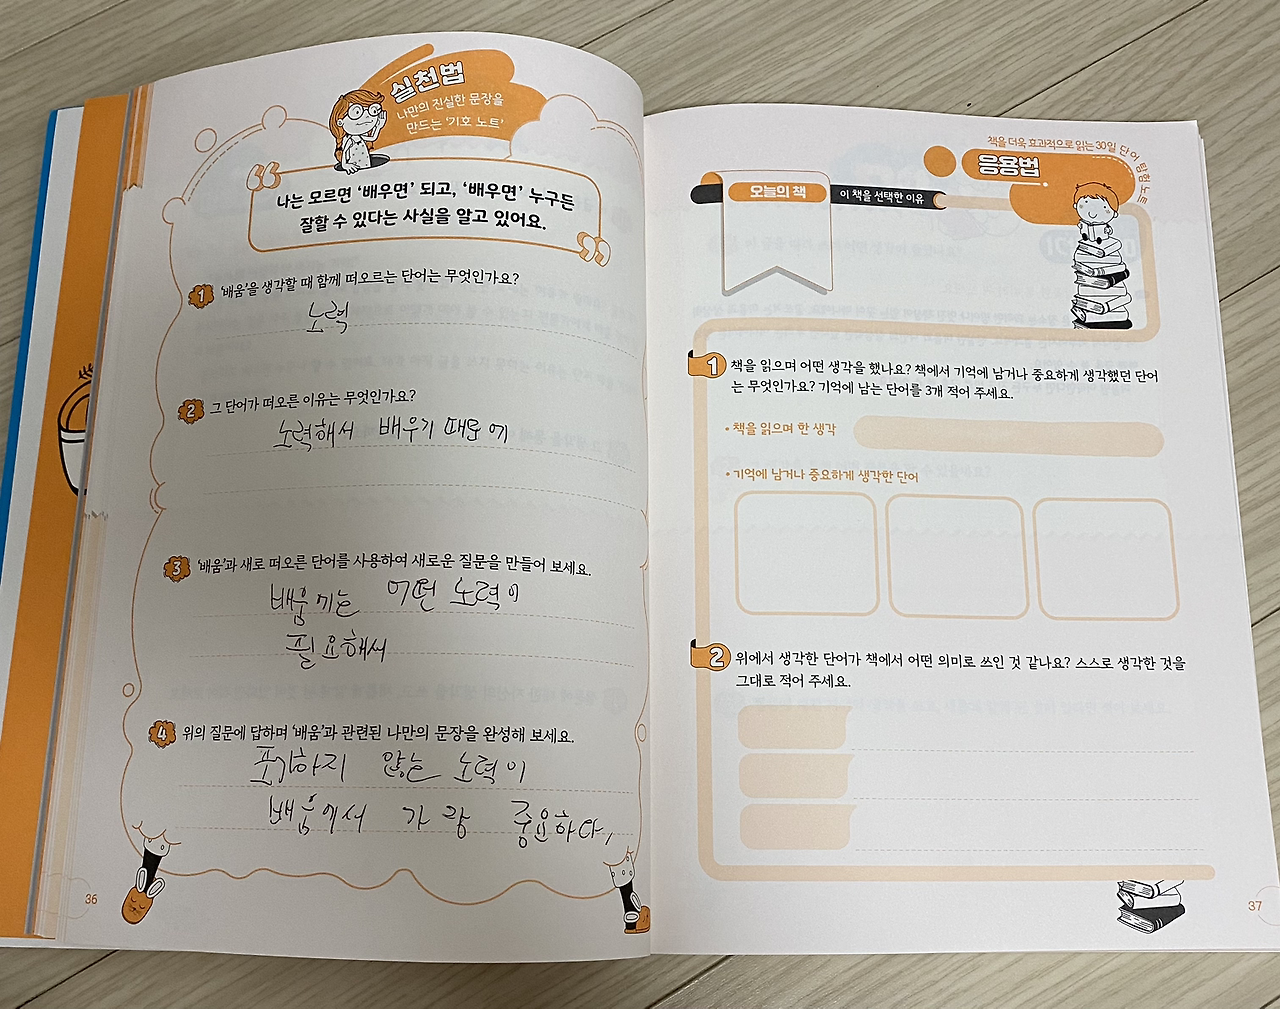 실천법
나만의 진실한 문장을
만드는 ‘기호 노트’
나는 모르면 ‘배우면’ 되고, ‘배우면’ 누구든
잘할 수 있다는 사실을 알고 있어요.
1 ‘배움’을 생각할 때 함께 떠오르는 단어는 무엇인가요?
노력
2 그 단어가 떠오른 이유는 무엇인가요?
노력해서 배우기 때문에
3 ‘배움’과 새로 떠오른 단어를 사용하여 새로운 질문을 만들어 보세요.
배움에는 어떤 노력이
필요해서
4 위의 질문에 답하며 ‘배움’과 관련된 나만의 문장을 완성해 보세요.
포기하지 않는 노력이
배움에서 가장 중요하다.
36
책을 더욱 효과적으로 읽는 30일 단어 탐험 노트
응용법
오늘의 책
이 책을 선택한 이유
1 책을 읽으며 어떤 생각을 했나요? 책에서 기억에 남거나 중요하게 생각했던 단어
는 무엇인가요? 기억에 남는 단어를 3개 적어 주세요.
• 책을 읽으며 한 생각
• 기억에 남거나 중요하게 생각한 단어
2 위에서 생각한 단어가 책에서 어떤 의미로 쓰인 것 같나요? 스스로 생각한 것을
그대로 적어 주세요.
37